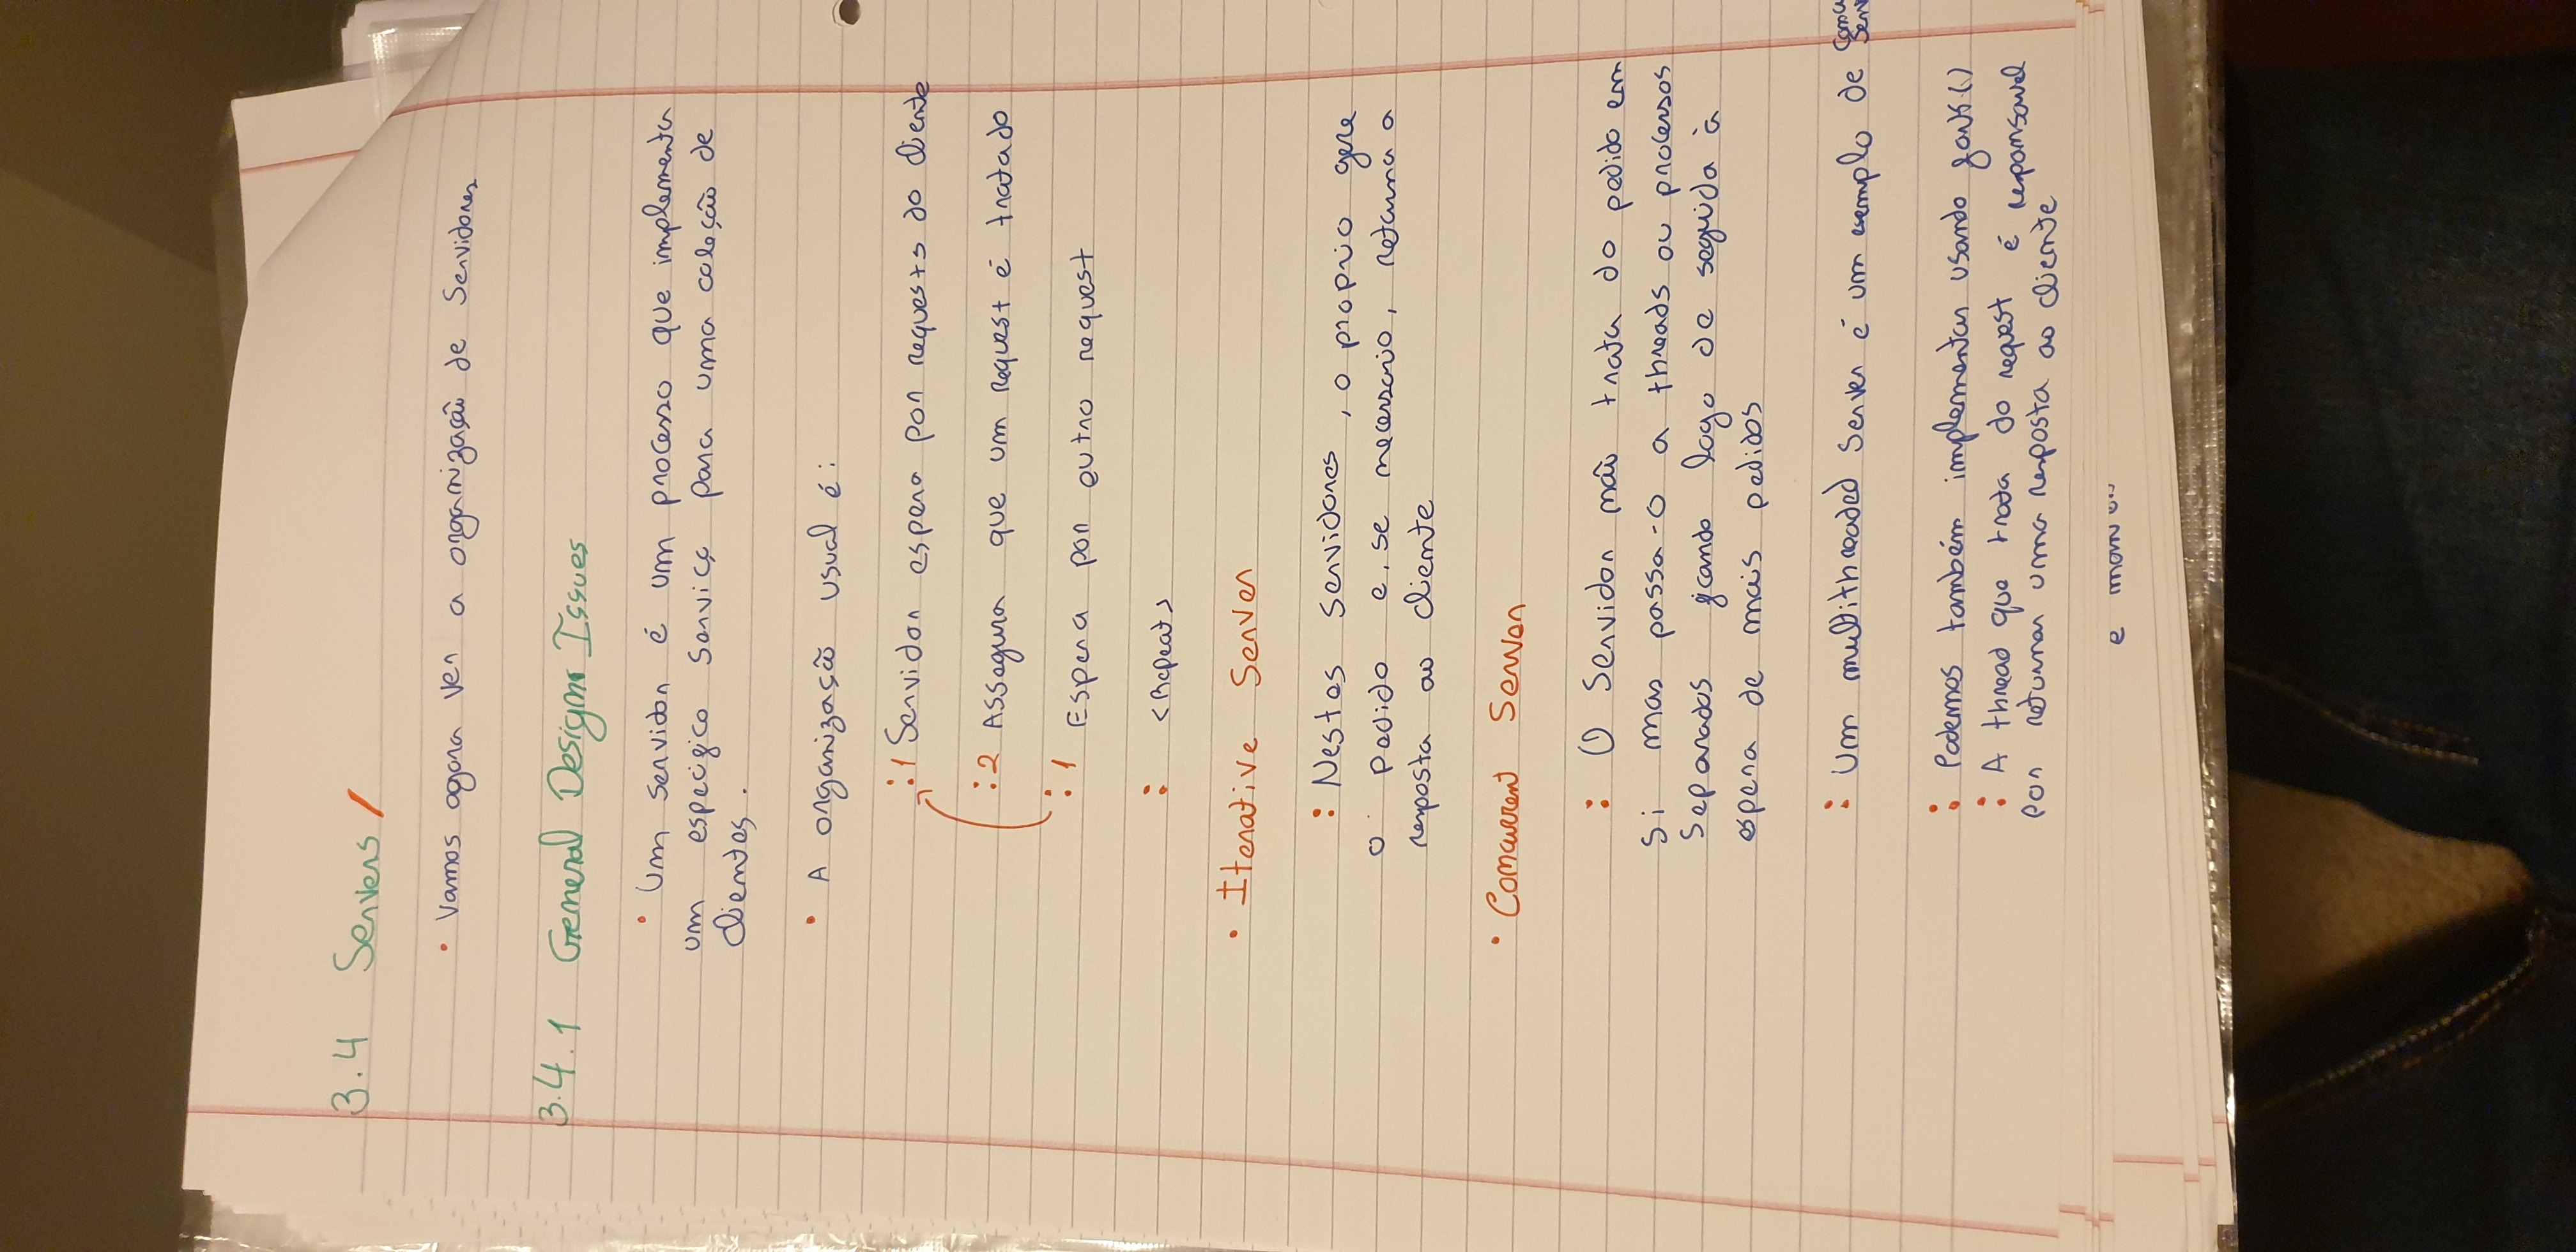 3.4 Servers /
• Vamos agora ver a organização de Servidores
3.4.1 General Design Issues
• Um servidor é um processo que implementa
um especifico serviço para uma coleção de
clientes.
• A organização usual é:
:1 Servidor espera por requests do cliente
:2 Assegura que um request é tratado
:1 Espera por outro request
: <Repeat>
• Iterative Server
: Nestes servidores, o proprio gere
o pedido e, se necessario, retorna a
resposta ao cliente
• Concurrent Server
: O Servidor não trata do pedido em
si mas passa-o a threads ou processos
separados ficando logo de seguida à
espera de mais pedidos
: Um multithreaded server é um exemplo de
: Podemos também implementar usando fork()
: A thread que trata do request é responsavel
por returnar uma resposta ao cliente
e